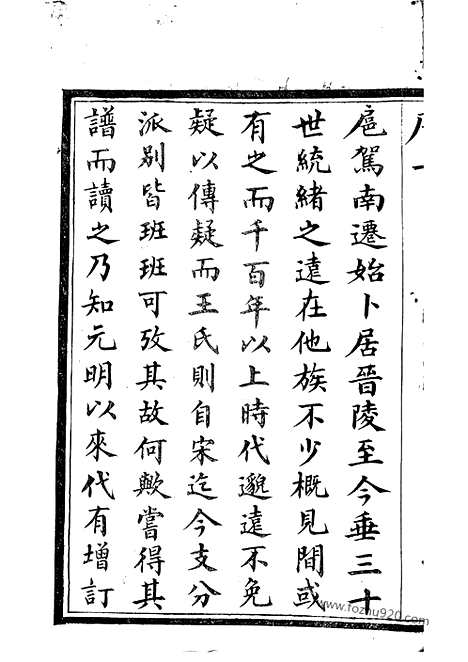 扈駕南遷始卜居晉陵至今垂三十
世統緒之遠在他族不少概見間或
有之而千百年以上時代邈遠不免
疑以傳疑而王氏則自宋迄今支分
派别皆班班可攷其故何歟嘗得其
譜而讀之乃知元明以來代有增訂
www.fozhu920.com